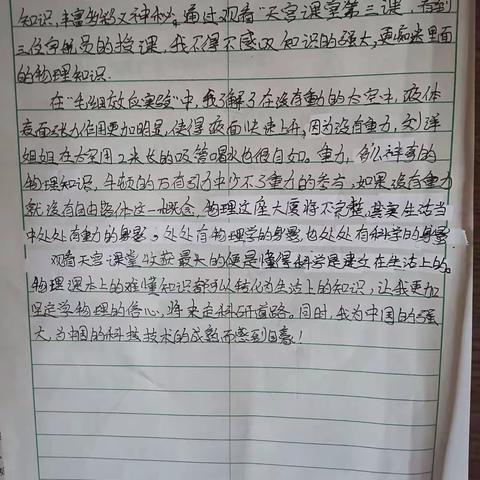 知识,丰富多彩又神秘。通过观看"天宫课堂第三课,看到
三位宇航员的授课,我不得不感叹知识的强大,更痴迷里面
的物理知识.
在"毛细效应实验"中,我了解了在没有重力的太空中,液体
表面张力作用更加明显,使得液面快速上升,因为没有重力,刘洋
姐姐在太空用2米长的吸管喝水也很自如。重力,多么神奇的
物理知识,牛顿的万有引力中少不了重力的参与,如果没有重力
就没有自由落体这一概念,物理这座大厦将不完整,其实生活当
中处处有重力的身影。处处有物理学的身影,也处处有科学的身影
观看天宫课堂收获最大的便是懂得科学是建立在生活上的。
物理课本上的难懂知识都可以转化为生活上的知识,让我更加
坚定学物理的信心,将来走科研道路。同时,我为中国的强
大,为中国的科技技术的成熟而感到自豪!